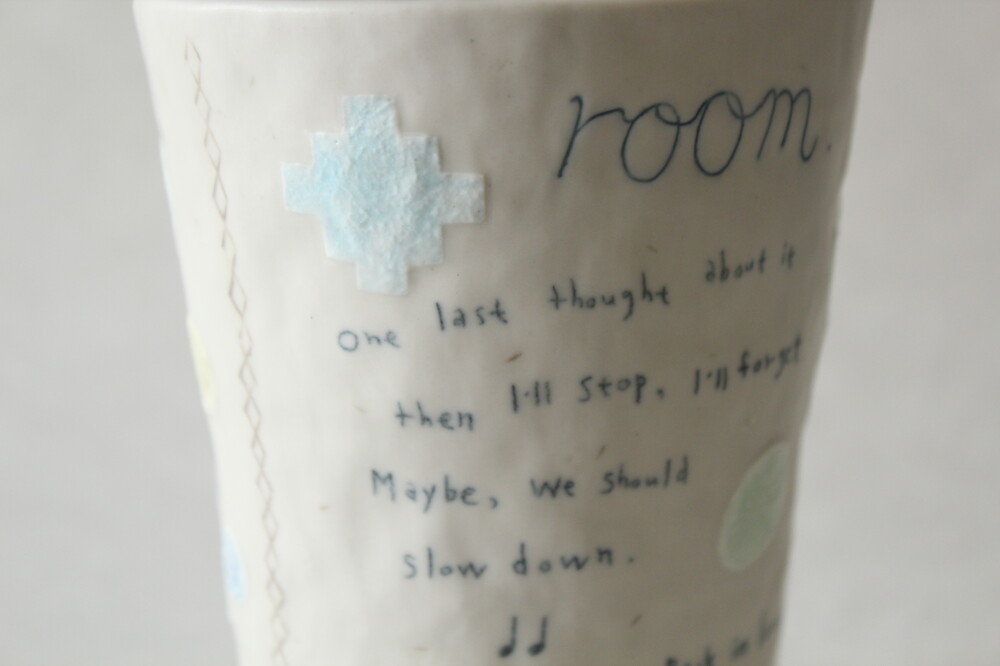 room.
one last thought about it
then I'll stop, I'll forget
Maybe, we should
slow down.